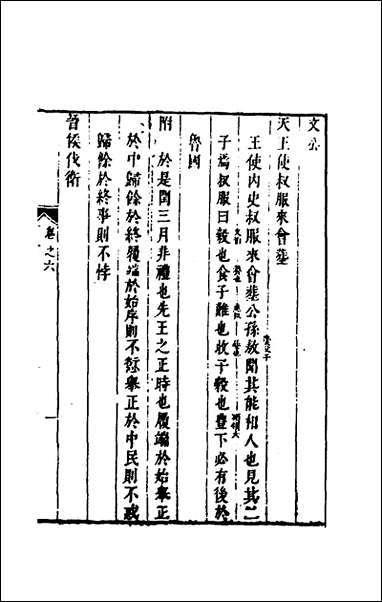 文公
天王使叔服來會葬
王使内史叔服來會葬公孫敖聞其能相人也見其二
子焉叔服曰穀也食子難也收子穀也豐下必有後於
魯國
附 於是閏三月非禮也先王之正時也履端於始舉正
於中歸餘於終履端於始序則不愆舉正於中民則不惑
歸餘於終事則不悖
晉侯伐衛
卷之六
一